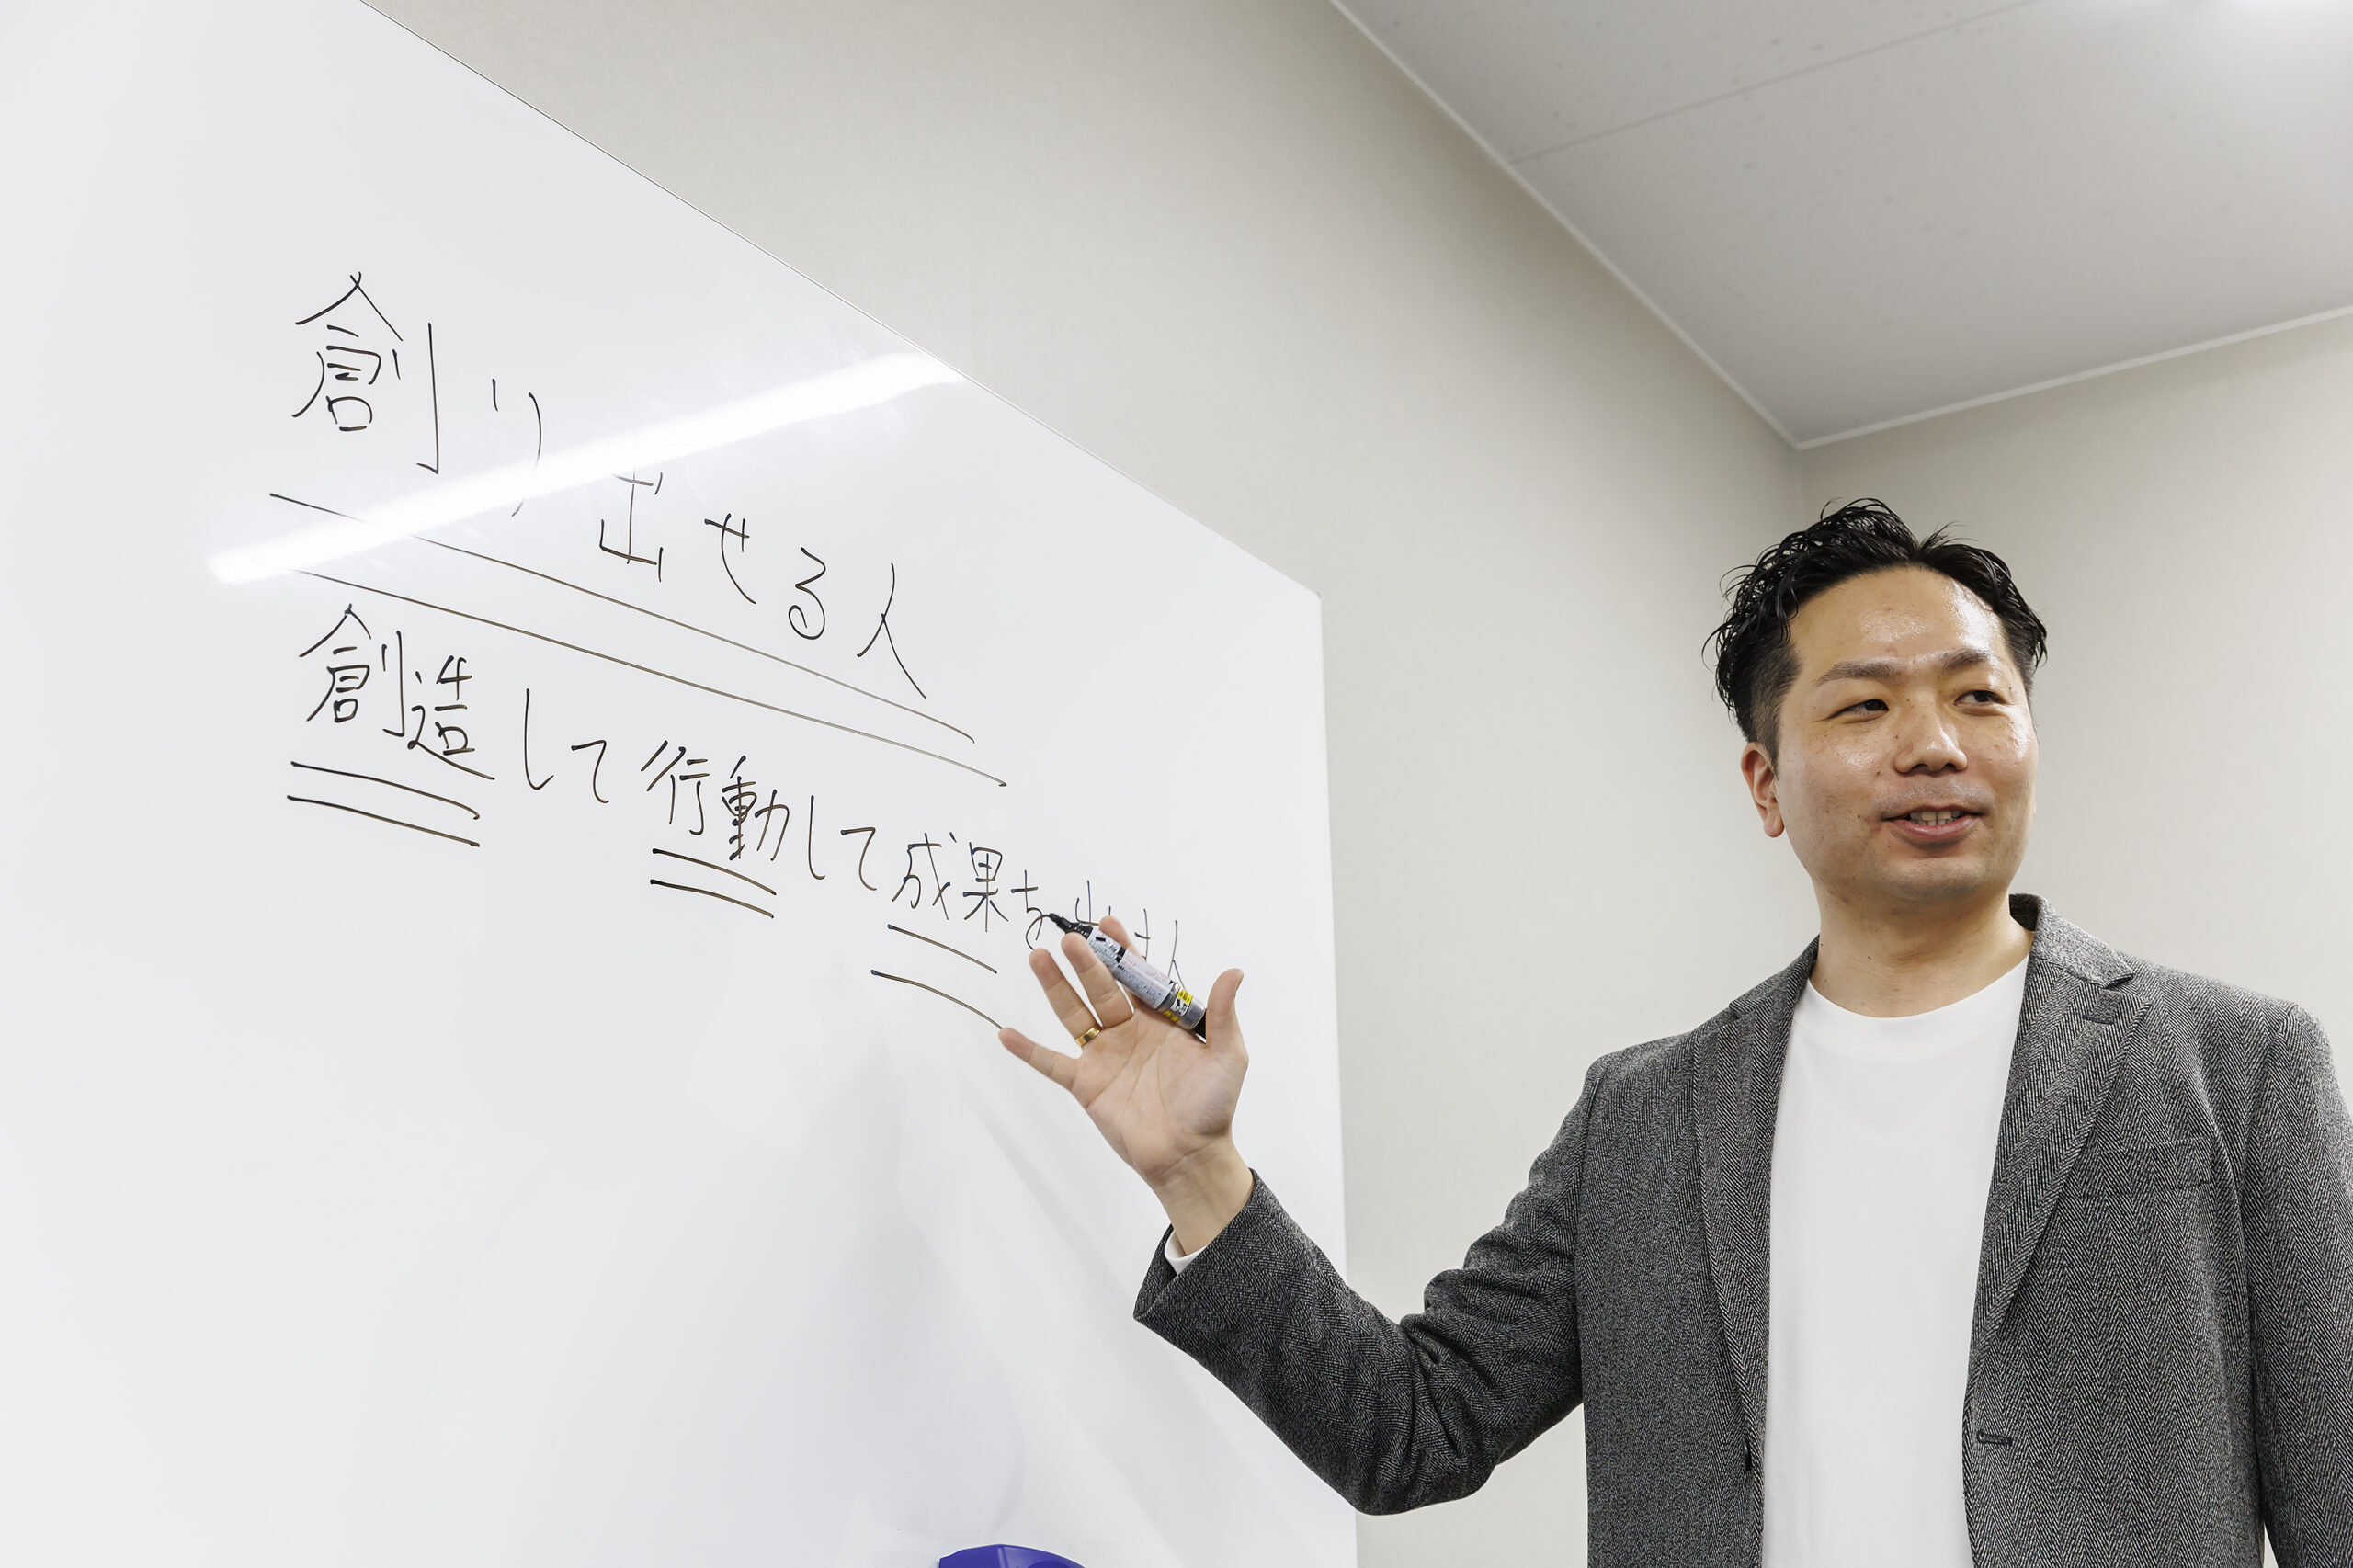 創り出せる人
創造して行動して成果を出せる人